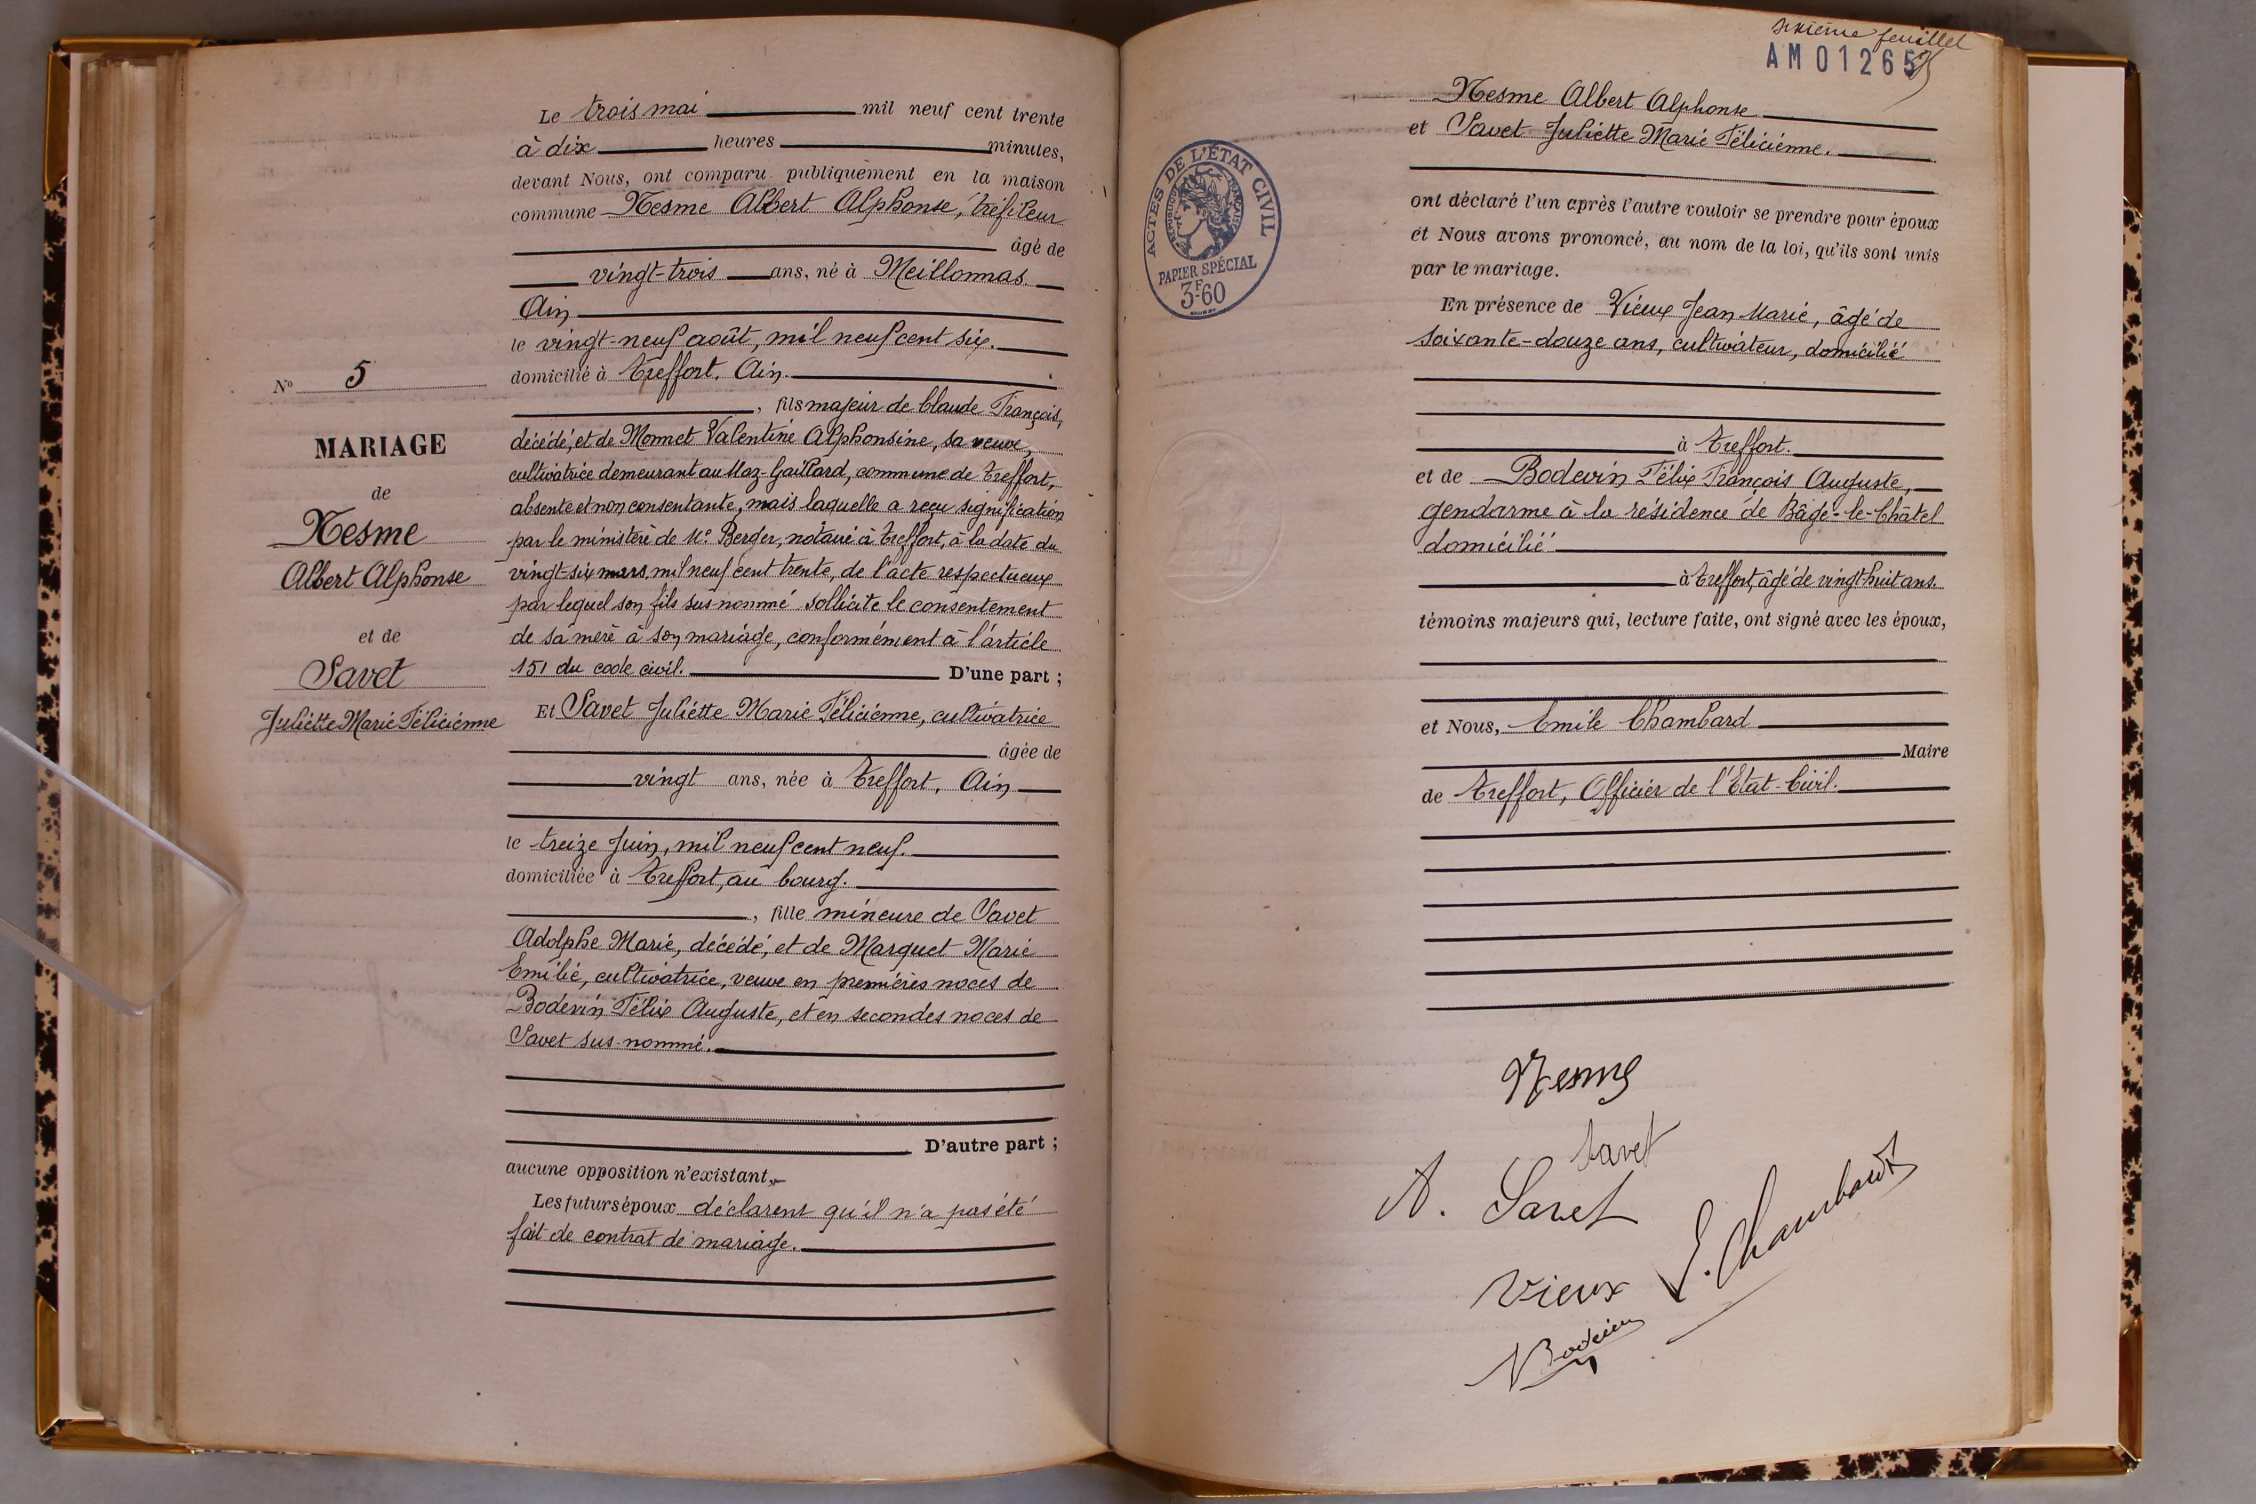 Le trois mai mil neuf cent trente
à dix heures minutes,
devant Nous, ont comparu publiquement en la maison
commune Nesme Albert Alphonse, tréfileur
âgé de
vingt-trois ans, né à Meillonnas
Ain
le vingt-neuf août, mil neuf cent six.
domicilié à Treffort. Ain.
, fils majeur de Claude François,
décédé, et de Monnet Valentine Alphonsine, sa veuve,
cultivatrice demeurant au Maz-Gaillard, commune de Treffort,
absente et non consentante, mais laquelle a reçu signification
par le ministère de Me Berger, notaire à Treffort, à la date du
vingt-six mars mil neuf cent trente, de l'acte respectueux
par lequel son fils sus-nommé sollicite le consentement
de sa mère à son mariage, conformément à l'article
151 du code civil. D'une part ;
Et Savet Juliette Marie Félicienne, cultivatrice
âgée de
vingt ans, née à Treffort, Ain
le treize Juin, mil neuf cent neuf.
domiciliée à Treffort, au bourg.
, fille mineure de Savet
Adolphe Marie, décédé, et de Marquet Marie
Emilie, cultivatrice, veuve en premières noces de
Bodevin Félix Auguste, et en secondes noces de
Savet sus-nommé.
D'autre part ;
aucune opposition n'existant,
Les futurs époux déclarent qu'il n'a pas été
fait de contrat de mariage.
No 5
MARIAGE
de
Nesme
Albert Alphonse
et de
Savet
Juliette Marie Félicienne
sixième feuillet
AM 01265
Nesme Albert Alphonse
et Savet Juliette Marie Félicienne.
ont déclaré l'un après l'autre vouloir se prendre pour époux
et Nous avons prononcé, au nom de la loi, qu'ils sont unis
par le mariage.
En présence de Vieux Jean Marie, âgé de
soixante-douze ans, cultivateur, domicilié
à Treffort.
et de Bodevin Félix François Auguste,
gendarme à la résidence de Bâgé-le-Châtel
domicilié
à Treffort, âgé de vingt-huit ans.
témoins majeurs qui, lecture faite, ont signé avec les époux,
et Nous, Emile Chambard
Maire
de Treffort, Officier de l'Etat-Civil.
ACTES DE L'ÉTAT CIVIL
RÉPUBLIQUE FRANÇAISE
PAPIER SPÉCIAL
3F60
Nesme
Savet
A. Savet
Vieux
E. Chambard
Bodevin